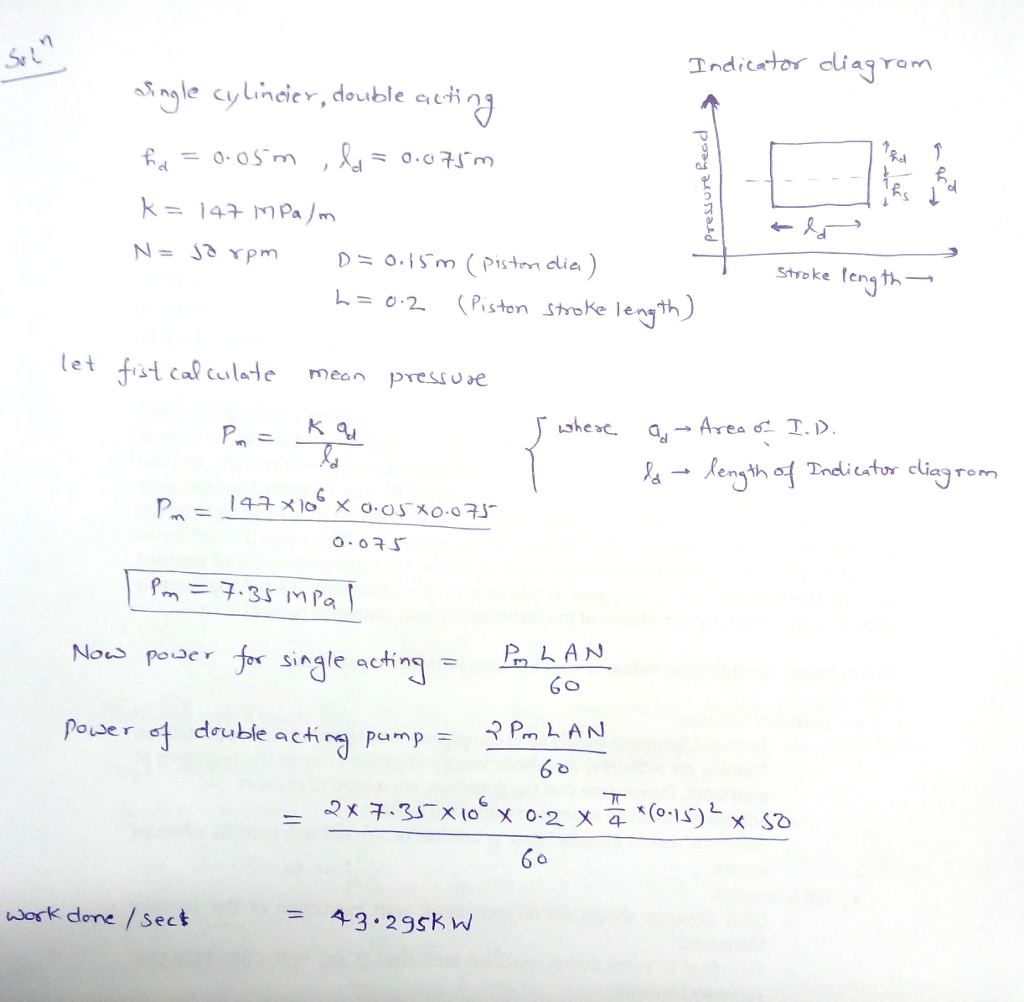 Solⁿ
Indicator diagram
Single cylincier, double acting
hd = 0.05m , ld = 0.075m
K = 147 MPa/m
N = 50 rpm
D = 0.15m (piston dia)
L = 0.2 (Piston stroke length)
pressure head
hd
hs
hd
ld
Stroke length →
let fist calculate mean pressure
Pm = K ad / ld
where ad → Area of I.D.
ld → length of Indicator diagram
Pm = 147 × 10⁶ × 0.05 × 0.075 / 0.075
Pm = 7.35 MPa
Now power for single acting = Pm L A N / 60
Power of double acting pump = 2 Pm L A N / 60
= 2 × 7.35 × 10⁶ × 0.2 × π/4 × (0.15)² × 50 / 60
work done / sect = 43.295 kW